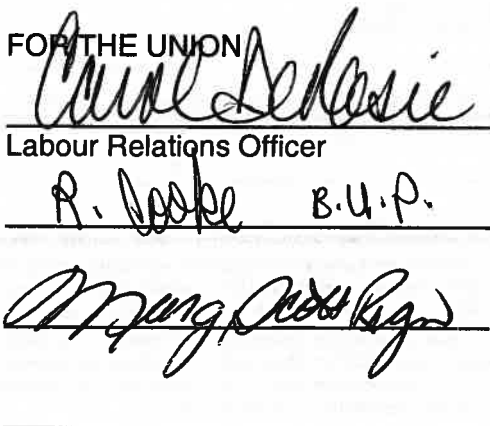 FOR THE UNION
Carol
Labour Relations Officer
R. Cooke B.U.P.
Marg Scott